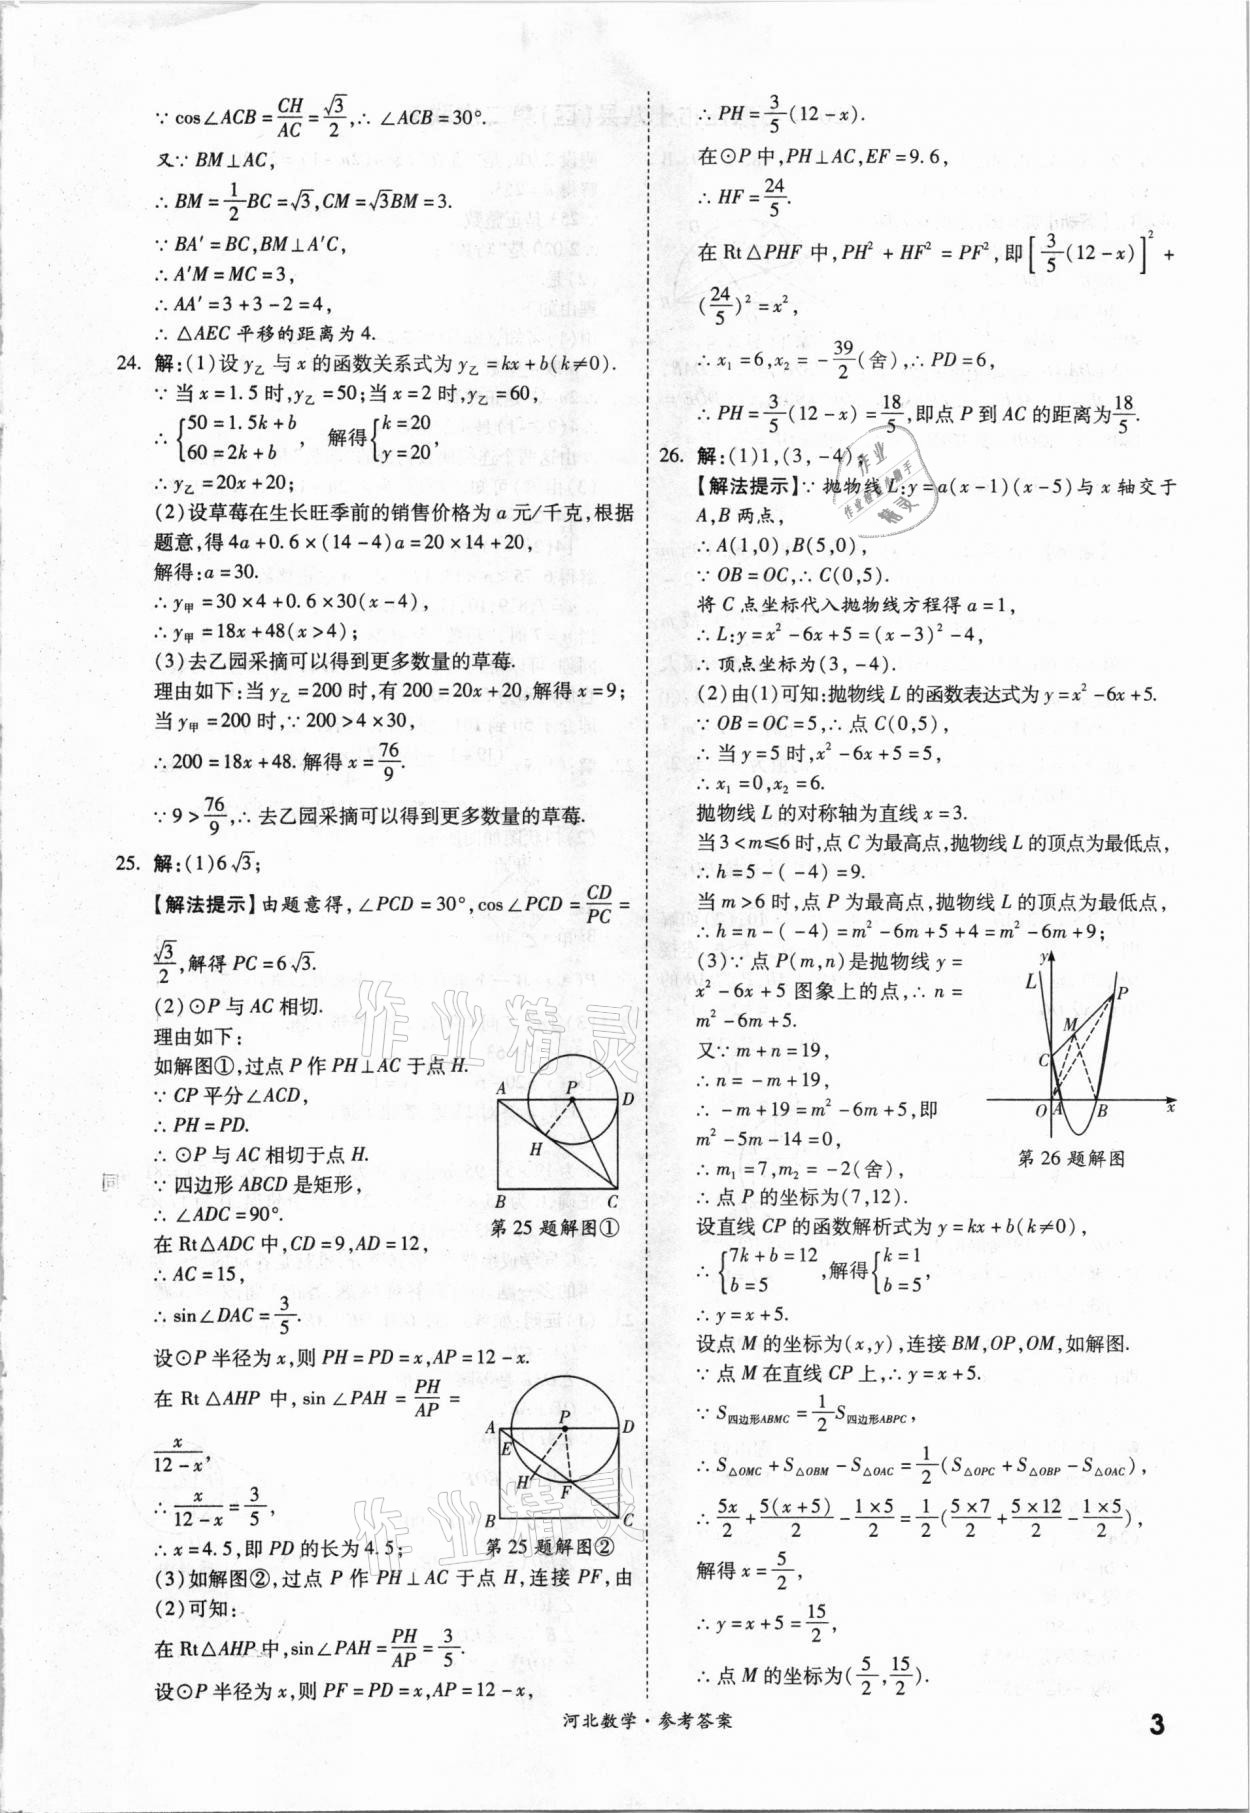 ∵ cos∠ACB = CH/AC = √3/2, ∴ ∠ACB = 30°.
又∵ BM⊥AC,
∴ BM = 1/2 BC = √3, CM = √3BM = 3.
∵ BA′ = BC, BM⊥A′C,
∴ A′M = MC = 3,
∴ AA′ = 3 + 3 - 2 = 4,
∴ △AEC 平移的距离为 4.
24. 解:(1)设 y乙 与 x 的函数关系式为 y乙 = kx + b(k≠0).
∵ 当 x = 1.5 时, y乙 = 50;当 x = 2 时, y乙 = 60,
∴ {50 = 1.5k + b
60 = 2k + b, 解得{k = 20
y = 20,
∴ y乙 = 20x + 20;
(2)设草莓在生长旺季前的销售价格为 a 元/千克,根据
题意,得 4a + 0.6 × (14 - 4)a = 20 × 14 + 20,
解得:a = 30.
∴ y甲 = 30 × 4 + 0.6 × 30(x - 4),
∴ y甲 = 18x + 48(x > 4);
(3)去乙园采摘可以得到更多数量的草莓.
理由如下:当 y乙 = 200 时,有 200 = 20x + 20,解得 x = 9;
当 y甲 = 200 时, ∵ 200 > 4 × 30,
∴ 200 = 18x + 48. 解得 x = 76/9.
∵ 9 > 76/9, ∴ 去乙园采摘可以得到更多数量的草莓.
25. 解:(1)6√3;
【解法提示】由题意得, ∠PCD = 30°, cos∠PCD = CD/PC =
√3/2,解得 PC = 6√3.
(2)⊙P 与 AC 相切.
理由如下:
如解图①,过点 P 作 PH⊥AC 于点 H.
∵ CP 平分∠ACD,
∴ PH = PD.
∴ ⊙P 与 AC 相切于点 H.
∵ 四边形 ABCD 是矩形,
∴ ∠ADC = 90°.
在 Rt△ADC 中, CD = 9, AD = 12,
∴ AC = 15,
∴ sin∠DAC = 3/5.
设⊙P 半径为 x,则 PH = PD = x, AP = 12 - x.
在 Rt △AHP 中, sin ∠PAH = PH/AP =
x/(12 - x),
∴ x/(12 - x) = 3/5,
∴ x = 4.5,即 PD 的长为 4.5;
(3)如解图②,过点 P 作 PH⊥AC 于点 H,连接 PF,由
(2)可知:
在 Rt△AHP 中, sin∠PAH = PH/AP = 3/5.
设⊙P 半径为 x,则 PF = PD = x, AP = 12 - x,
A P D
H
B C
第 25 题解图①
A P D
E
H F
B C
第 25 题解图②
∴ PH = 3/5(12 - x).
在⊙P 中, PH⊥AC, EF = 9.6,
∴ HF = 24/5.
在 Rt△PHF 中, PH² + HF² = PF²,即[3/5(12 - x)]² +
(24/5)² = x²,
∴ x₁ = 6, x₂ = -39/2(舍), ∴ PD = 6,
∴ PH = 3/5(12 - x) = 18/5,即点 P 到 AC 的距离为18/5.
26. 解:(1)1,(3, -4).
【解法提示】∵ 抛物线 L:y = a(x - 1)(x - 5)与 x 轴交于
A,B 两点,
∴ A(1,0),B(5,0),
∵ OB = OC, ∴ C(0,5).
将 C 点坐标代入抛物线方程得 a = 1,
∴ L:y = x² - 6x + 5 = (x - 3)² - 4,
∴ 顶点坐标为(3, -4).
(2)由(1)可知:抛物线 L 的函数表达式为 y = x² - 6x + 5.
∵ OB = OC = 5, ∴ 点 C(0,5),
∴ 当 y = 5 时, x² - 6x + 5 = 5,
∴ x₁ = 0, x₂ = 6.
抛物线 L 的对称轴为直线 x = 3.
当 3 < m ≤ 6 时,点 C 为最高点,抛物线 L 的顶点为最低点,
∴ h = 5 - (-4) = 9.
当 m > 6 时,点 P 为最高点,抛物线 L 的顶点为最低点,
∴ h = n - (-4) = m² - 6m + 5 + 4 = m² - 6m + 9;
(3)∵ 点 P(m,n)是抛物线 y =
x² - 6x + 5 图象上的点, ∴ n =
m² - 6m + 5.
又∵ m + n = 19,
∴ n = -m + 19,
∴ -m + 19 = m² - 6m + 5,即
m² - 5m - 14 = 0,
∴ m₁ = 7, m₂ = -2(舍),
∴ 点 P 的坐标为(7,12).
y
L
P
M
C
O A B x
第 26 题解图
设直线 CP 的函数解析式为 y = kx + b(k≠0),
∴ {7k + b = 12
b = 5, 解得{k = 1
b = 5,
∴ y = x + 5.
设点 M 的坐标为(x,y),连接 BM,OP,OM,如解图.
∵ 点 M 在直线 CP 上, ∴ y = x + 5.
∵ S四边形ABMC = 1/2 S四边形ABPC,
∴ S△OMC + S△OBM - S△OAC = 1/2(S△OPC + S△OBP - S△OAC),
∴ 5x/2 + 5(x + 5)/2 - 1×5/2 = 1/2(5×7/2 + 5×12/2 - 1×5/2),
解得 x = 5/2,
∴ y = x + 5 = 15/2,
∴ 点 M 的坐标为(5/2, 15/2).
河北数学·参考答案
3
作业精灵
作业精灵